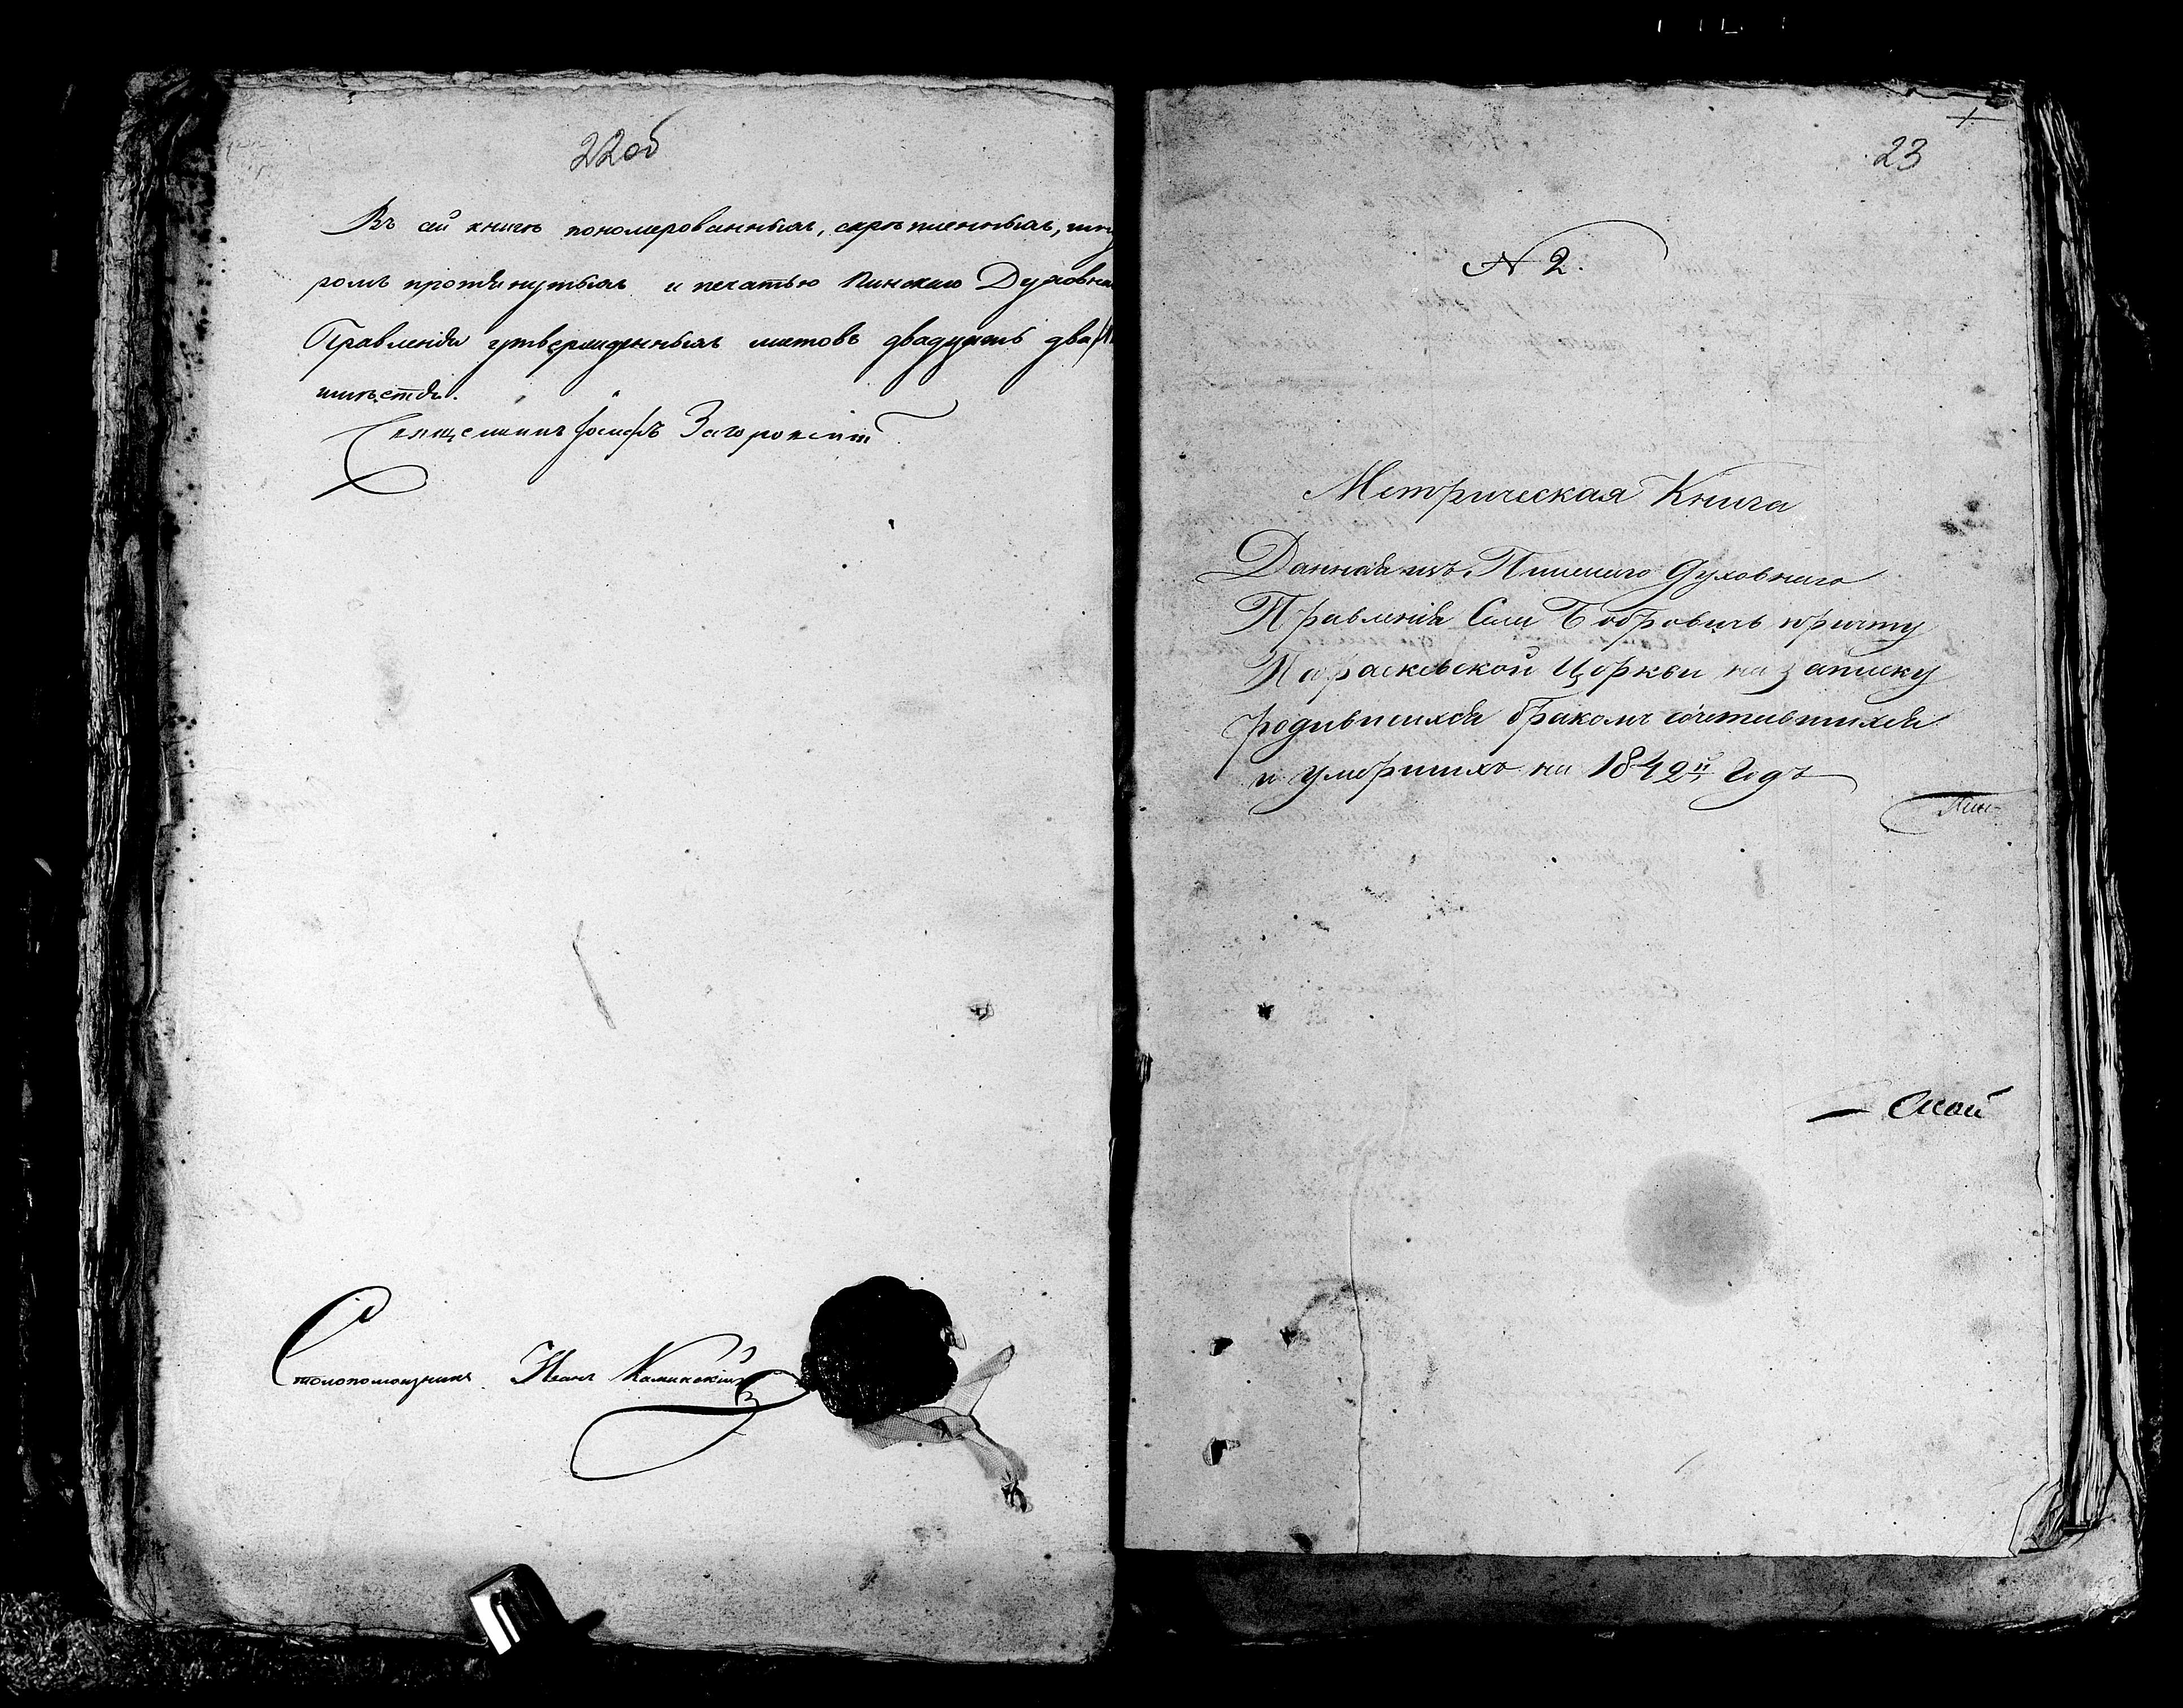 22об
Въ сей книгѣ пономерованныхъ, скрѣпленныхъ, шну
ромъ протянутыхъ и печатью Пинскаго Духовна
Правленія утвержденныхъ листовъ двадцать два
шнѣстдя.
Священникъ Іосифъ Загоровскій
Столопомощникъ Иванъ Каминскій
23
N 2.
Метрическая Книга
Данная изъ Пинскаго Духовнаго
Правленія Села Бобровичь причту
Параскевской Церкви на записку
родившихся бракомъ сочетавшихся
и умершихъ на 1842й Годъ
Пин-
— Ской